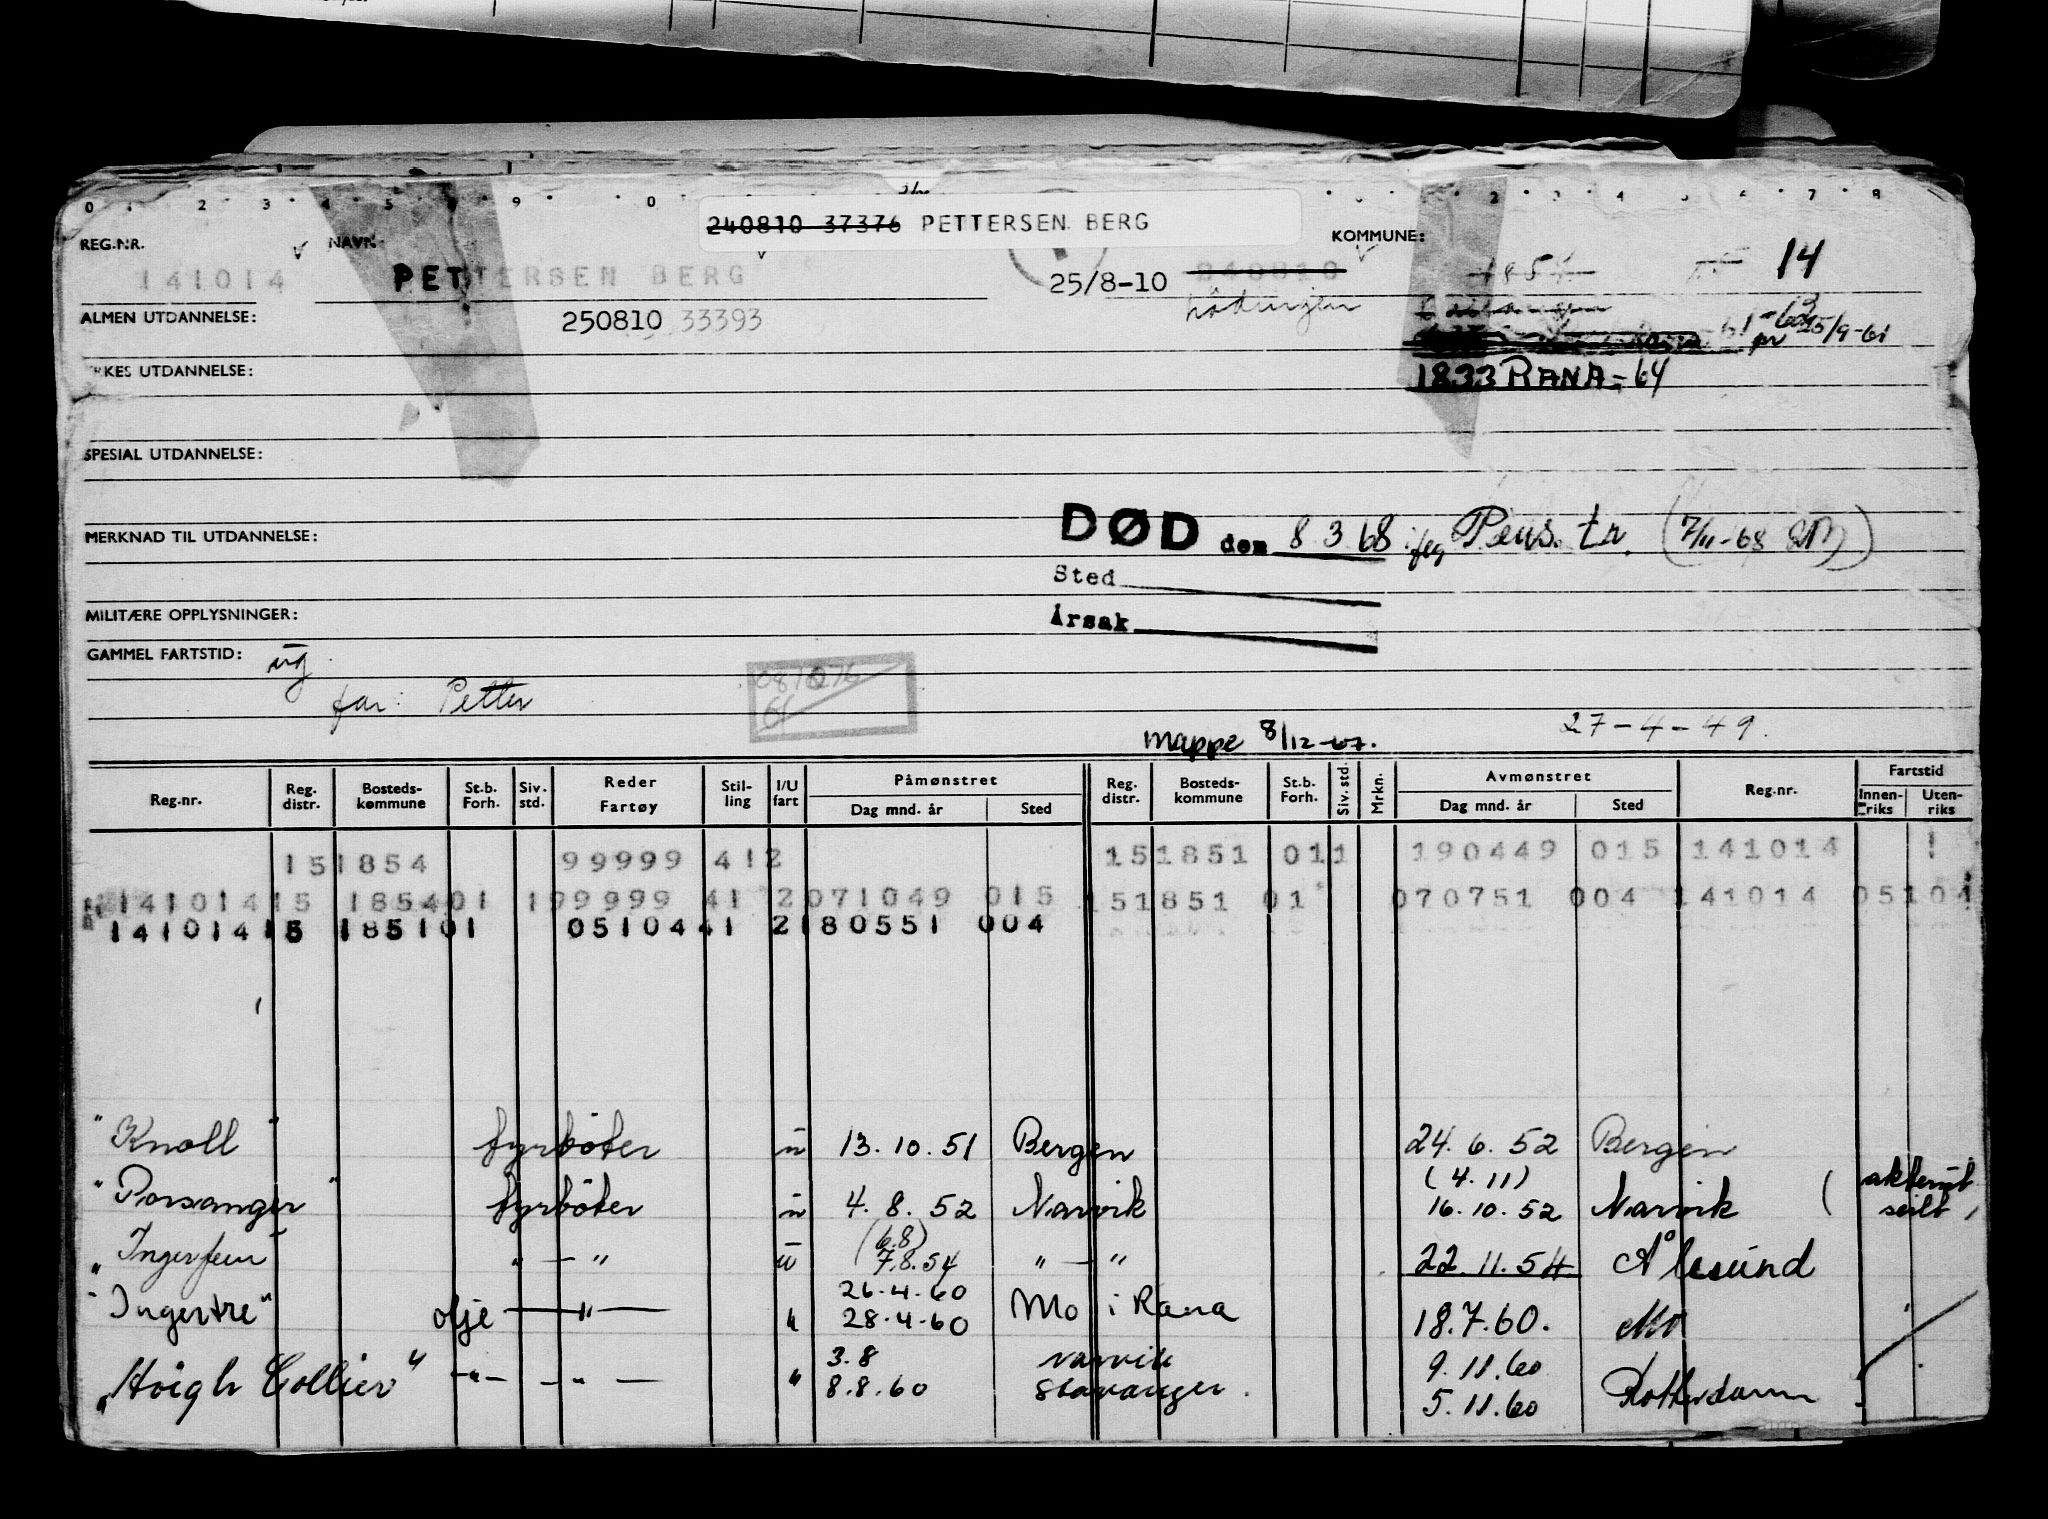 0 1 2 3 4 5 9 0 2 3 4 5 6 7 8
240810 37376 PETTERSEN BERG
REG.NR. NAVN KOMMUNE:
141014 PETTERSEN BERG 25/8-10 240810 1854 14
ALMEN UTDANNELSE: 250810 33393
15/9-61
YRKES UTDANNELSE: 1833 RANA - 64
SPESIAL UTDANNELSE:
MERKNAD TIL UTDANNELSE: DØD den 8.3.68 Pens. tr. (7/11-68
Sted
MILITÆRE OPPLYSNINGER: Årsak
GAMMEL FARTSTID: ug
far: Petter 087076
61
mappe 8/12-67. 27-4-49.
Reg.nr. Reg. distr. Bosteds-kommune St.b. Forh. Siv. std. Reder Fartøy Stil-ling I/U fart Påmønstret Dag mnd. år Sted Reg. distr. Bosteds-kommune St.b. Forh. Siv. std. Mrkn. Avmønstret Dag mnd. år Sted Reg.nr. Fartstid Innen-riks Uten-riks
151854 99999 412 151851 011 190449 015 141014
14101415 185401 199999 41 2071049 015 151851 01 070751 004 141014 05104
14101415 185101 0510441 2180551 004
"Knoll" fyrbøter u 13.10.51 Bergen 24.6.52 Bergen
(4.11)
"Porsanger" fyrbøter u 4.8.52 Narvik 16.10.52 Narvik ( akterut seilt )
(6.8)
"Ingerfem" " — " u 7.8.54 " — " 22.11.54 Ålesund
26.4.60
"Ingertre" olje — " — " 28.4.60 Mo i Rana 18.7.60. Mo
3.8 Narvik 9.11.60
"Høigh Collier" - " - — " — " 8.8.60 Stavanger. 5.11.60 Rotterdam